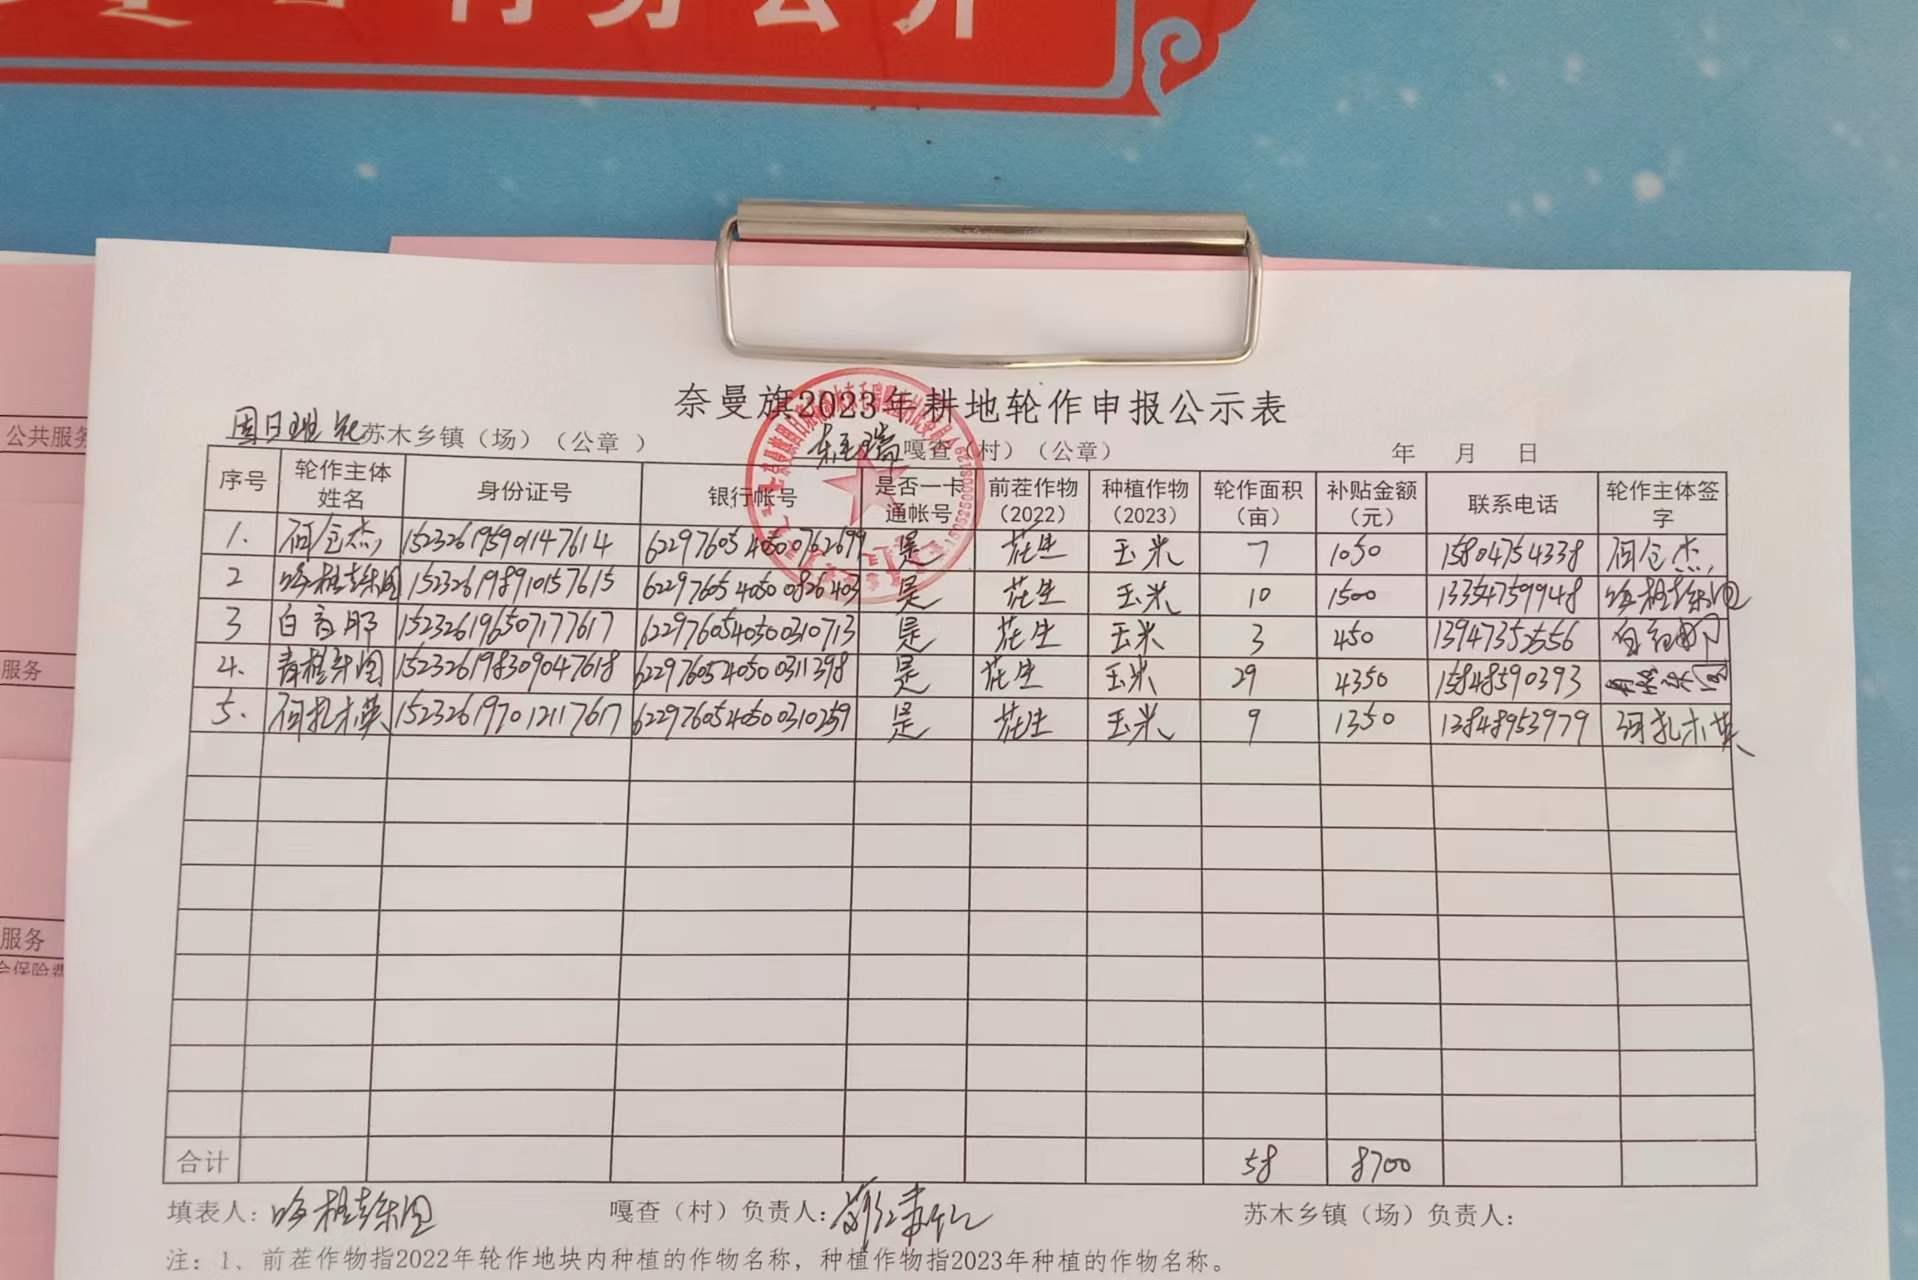 村务公开
公共服务
服务
服务
会保险费
奈曼旗2023年耕地轮作申报公示表
固日班花苏木乡镇（场）（公章 ） 嘎查（村）（公章） 年 月 日
序号 轮作主体姓名 身份证号 银行帐号 是否一卡通帐号 前茬作物（2022） 种植作物（2023） 轮作面积（亩） 补贴金额（元） 联系电话 轮作主体签字
1. 152326195901147614 6229760540500762699 是 花生 玉米 7 1050 15804754338
2 152326198910157615 6229760540500826403 是 花生 玉米 10 1500 13354759948
3 白音那 152326196507177617 6229760540500310713 是 花生 玉米 3 450 13947352556 白音那
4. 152326198309047618 6229760540500311398 是 花生 玉米 29 4350 15848590393
5. 阿扎木英 152326197012117617 6229760540500310259 是 花生 玉米 9 1350 13848953979 阿扎木英
合计 58 8700
填表人： 嘎查（村）负责人： 苏木乡镇（场）负责人：
注：1、前茬作物指2022年轮作地块内种植的作物名称，种植作物指2023年种植的作物名称。